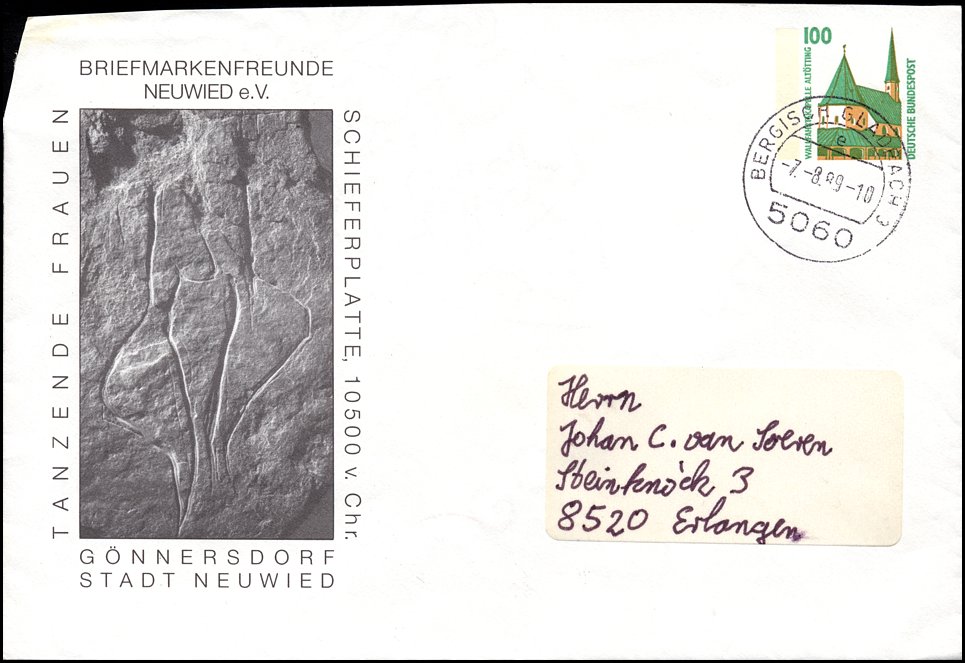 BRIEFMARKENFREUNDE
NEUWIED e.V.
TANZENDE FRAUEN
SCHIEFERPLATTE, 10500 v. Chr.
GÖNNERSDORF
STADT NEUWIED
100
WALLFAHRTSKAPELLE ALTÖTTING
DEUTSCHE BUNDESPOST
BERGISCH GLADBACH 3
e
-7.-8.89-10
5060
Herrn
Johan C. van Soeren
Steinknöck 3
8520 Erlangen